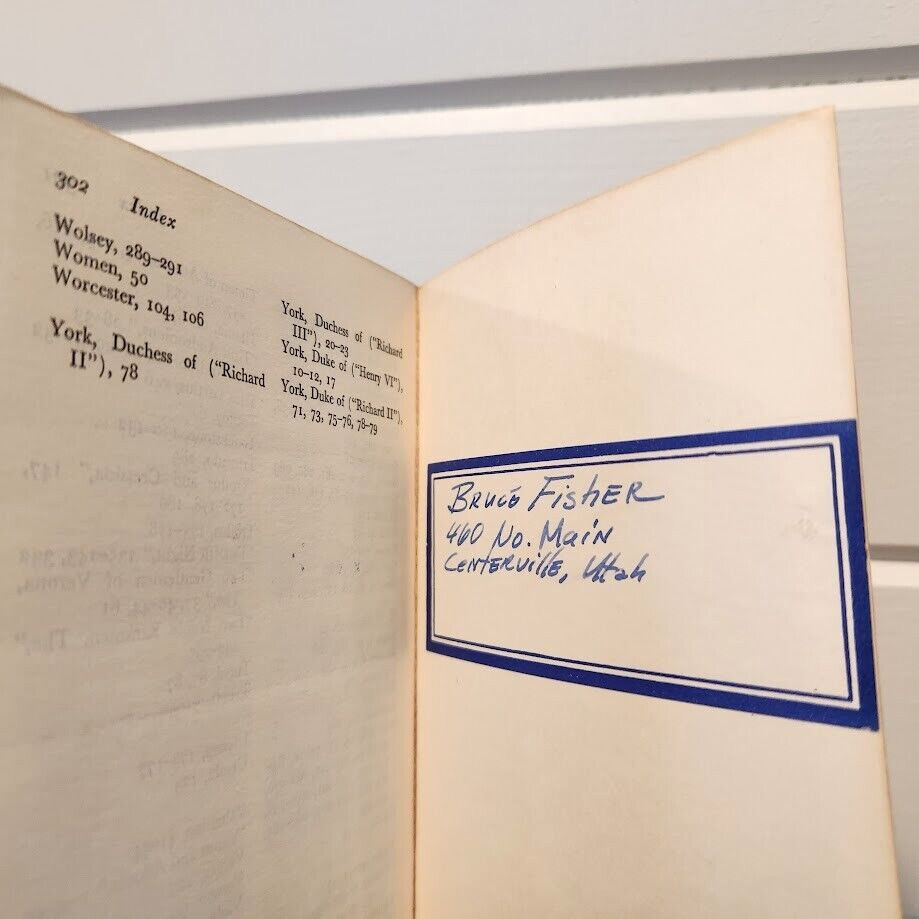 302 Index
Wolsey, 289–291
Women, 50
Worcester, 104, 106
York, Duchess of (“Richard
II”), 78
York, Duchess of (“Richard
III”), 20–23
York, Duke of (“Henry VI”),
10–12, 17
York, Duke of (“Richard II”),
71, 73, 75–76, 78–79
Bruce Fisher
460 No. Main
Centerville, Utah